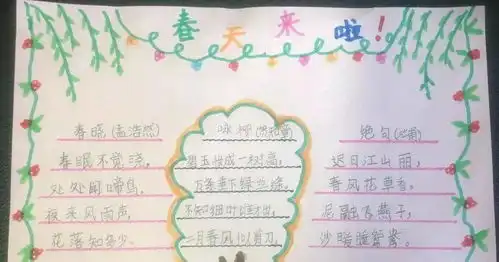 春天来啦!
春晓(孟浩然)
春眠不觉晓,
处处闻啼鸟。
夜来风雨声,
花落知多少。
咏柳(贺知章)
碧玉妆成一树高,
万条垂下绿丝绦。
不知细叶谁裁出,
二月春风似剪刀。
绝句(杜甫)
迟日江山丽,
春风花草香。
泥融飞燕子,
沙暖睡鸳鸯。